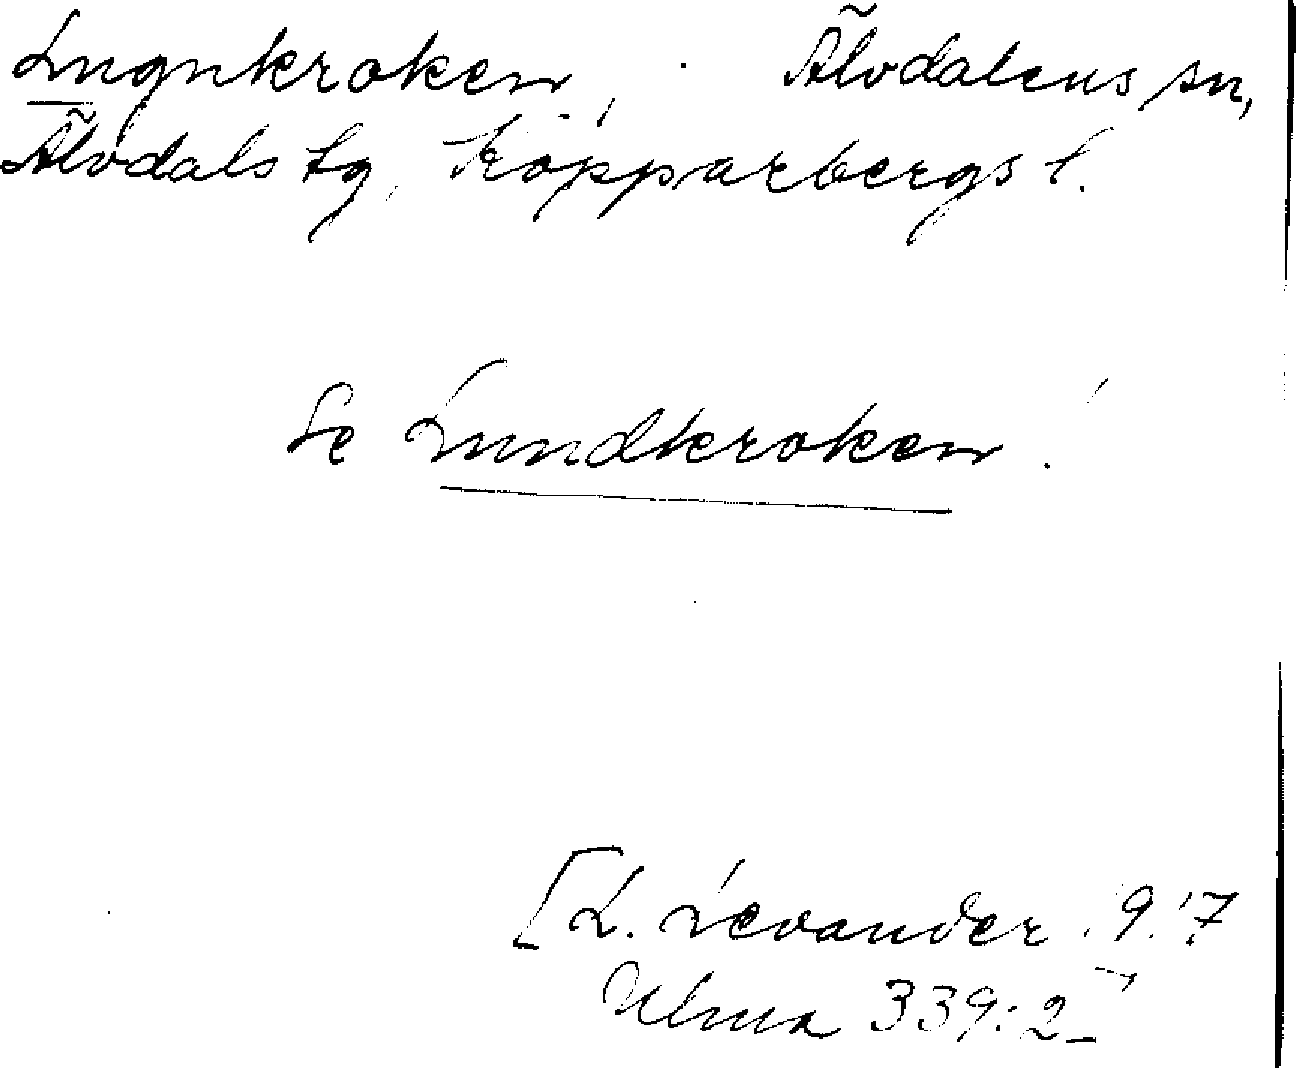 Lugnkroken, Älvdalens sn,
Älvdals tg, Kopparbergs l.
Se Lundkroken!
[L. Levander 1917
Ulma 339:2]